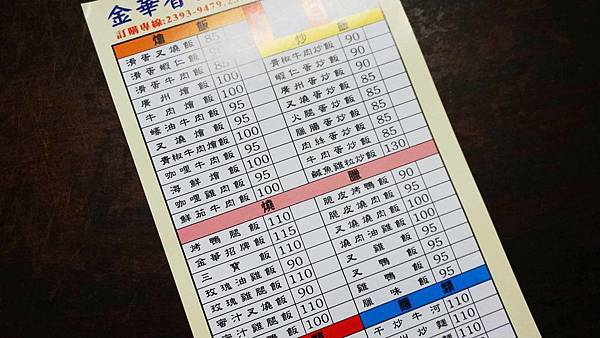 金華香
訂購專線:2393-9479.23
燴 飯
滑蛋叉燒飯 85
滑蛋蝦仁飯 95
滑蛋牛肉飯 85
廣州燴飯 100
牛肉燴飯 95
蠔油牛肉飯 95
叉燒燴飯 95
青椒牛肉燴飯 100
咖哩牛肉飯 95
海鮮燴飯 100
咖哩雞肉飯 95
鮮茄牛肉飯 100
炒
青椒牛肉炒飯 90
蝦仁蛋炒飯 90
廣州蛋炒飯 85
叉燒蛋炒飯 90
火腿蛋炒飯 85
臘腸蛋炒飯 85
肉絲蛋炒飯 85
牛肉蛋炒飯 85
鹹魚雞粒炒飯 130
燒 臘
烤鴨腿飯 110
金華招牌飯 115
三寶飯 100
玫瑰油雞飯 90
玫瑰雞腿飯 110
蜜汁叉燒飯 90
蜜汁雞腿飯 110
100
脆皮烤鴨飯 90
脆皮燒肉飯 95
叉燒燒肉飯 95
燒肉油雞飯 95
叉雞飯 95
叉鴨飯 95
雞鴨飯 95
臘味飯 95
麵 類
干炒牛河 110
炒麵 110